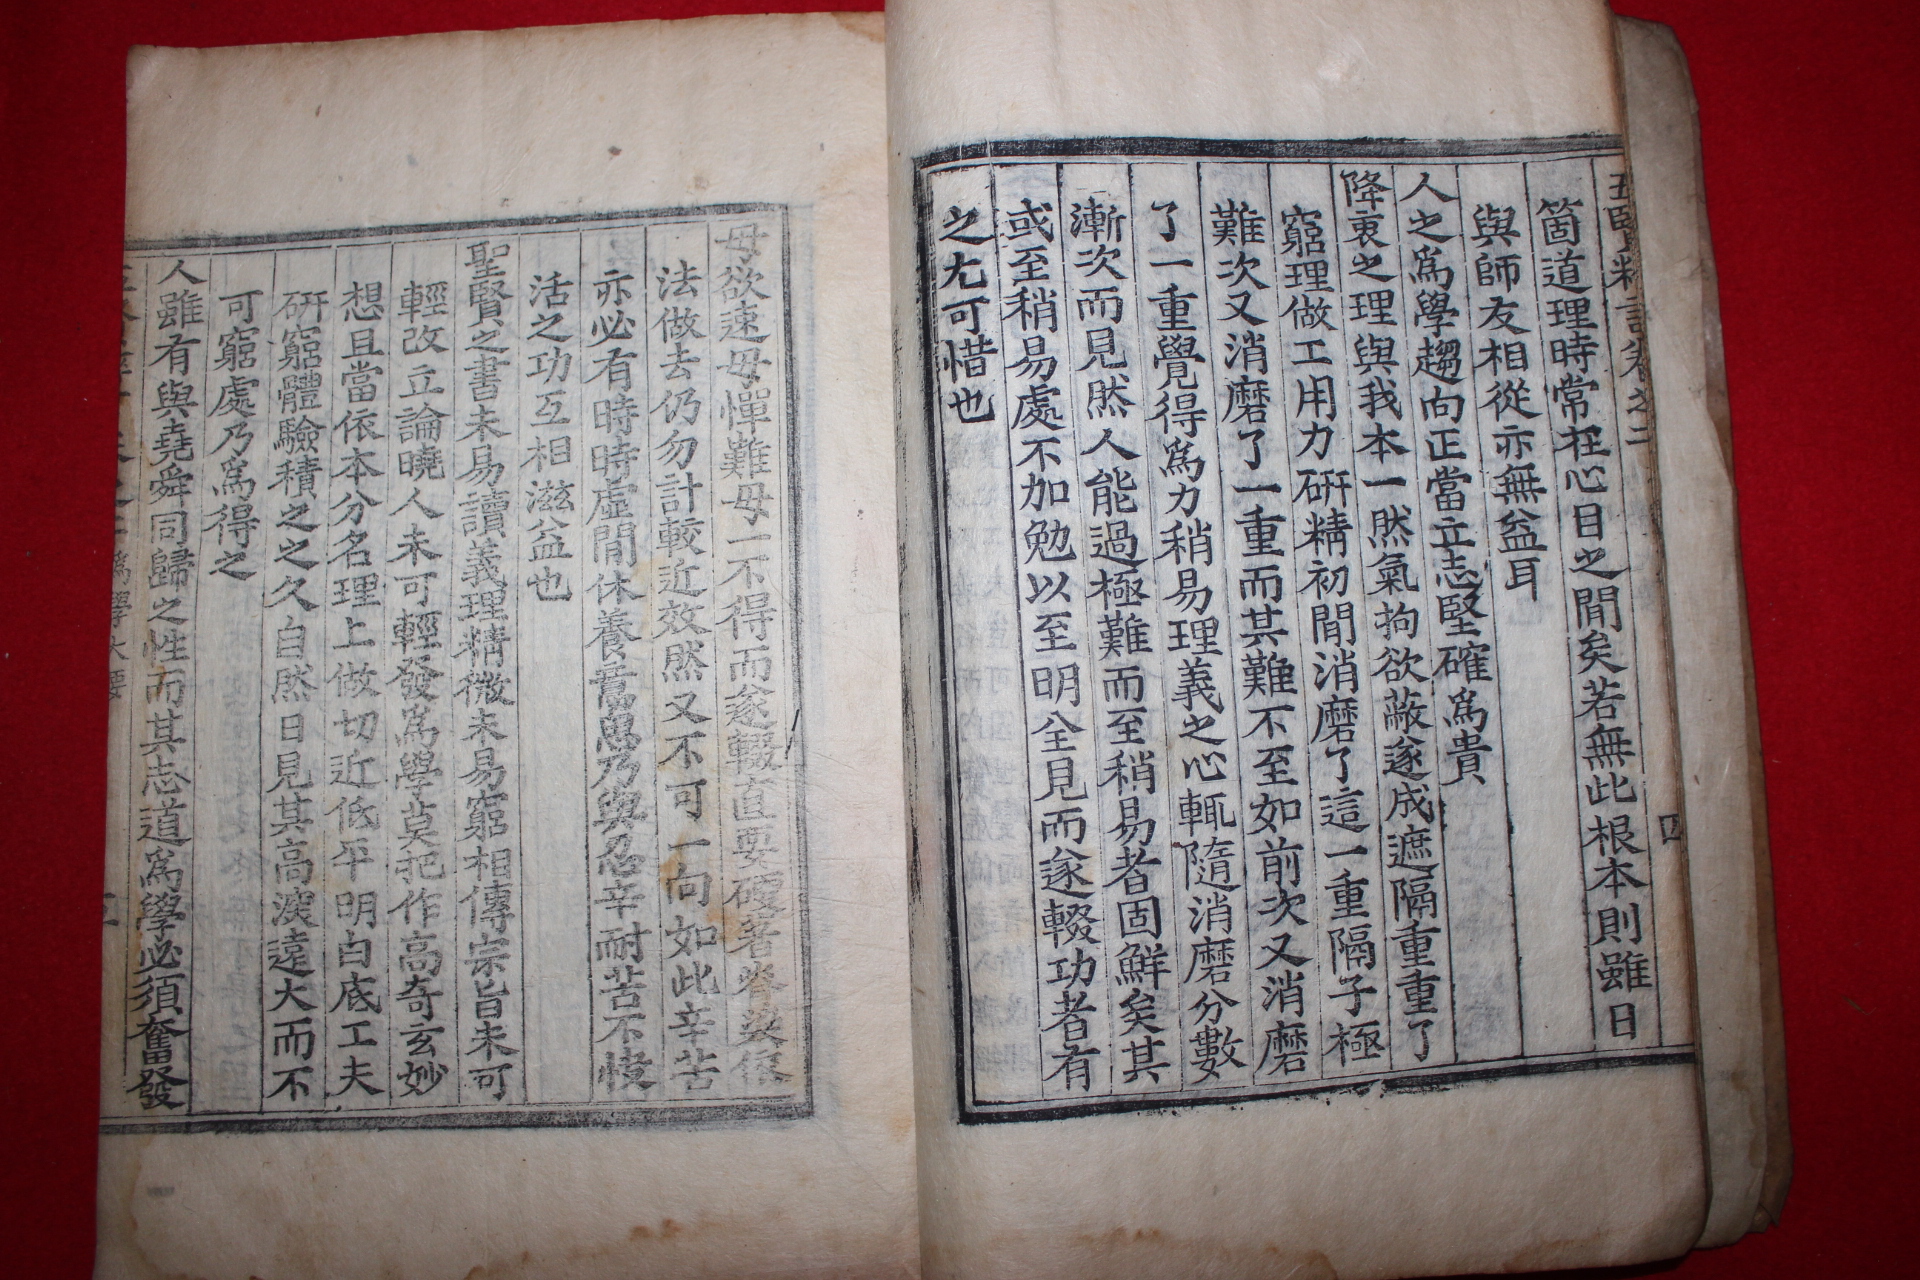 五賢粹語卷之二
四
箇道理時常在心目之間矣若無此根本則雖日
與師友相從亦無益耳
人之爲學趨向正當立志堅確爲貴
降衷之理與我本一然氣拘欲蔽遂成遮隔重重了
窮理做工用力硏精初間消磨了這一重隔子極
難次又消磨了一重而其難不至如前次又消磨
了一重覺得爲力稍易理義之心輒隨消磨分數
漸次而見然人能過極難而至稍易者固鮮矣其
或至稍易處不加勉以至明全見而遂輟功者有
之尤可惜也
毋欲速毋憚難毋一不得而遂輟直要硬著脊梁依
法做去仍勿計較近效然又不可一向如此辛苦
亦必有時時虛閒休養意思乃與忍辛耐苦不
活之功互相滋益也
聖賢之書未易讀義理精微未易窮相傳宗旨未可
輕改立論曉人未可輕發爲學莫把作高奇玄妙
想且當依本分名理上做切近低平明白底工夫
硏窮體驗積之之久自然日見其高深遠大而不
可窮處乃爲得之
人雖有與堯舜同歸之性而其志道爲學必須奮發
爲學大要